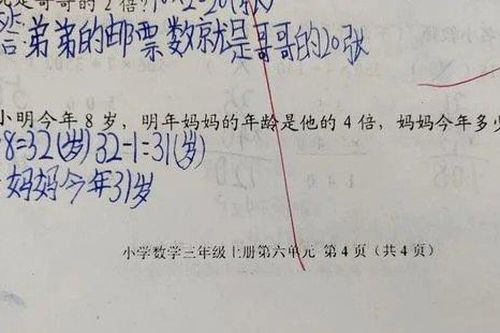 是哥哥的2倍?
答:弟弟的邮票数就是哥哥的20张
小明今年8岁,明年妈妈的年龄是他的4倍,妈妈今年多少
8=32(岁) 32-1=31(岁)
妈妈今年31岁
小学数学三年级上册第六单元 第4页(共4页)